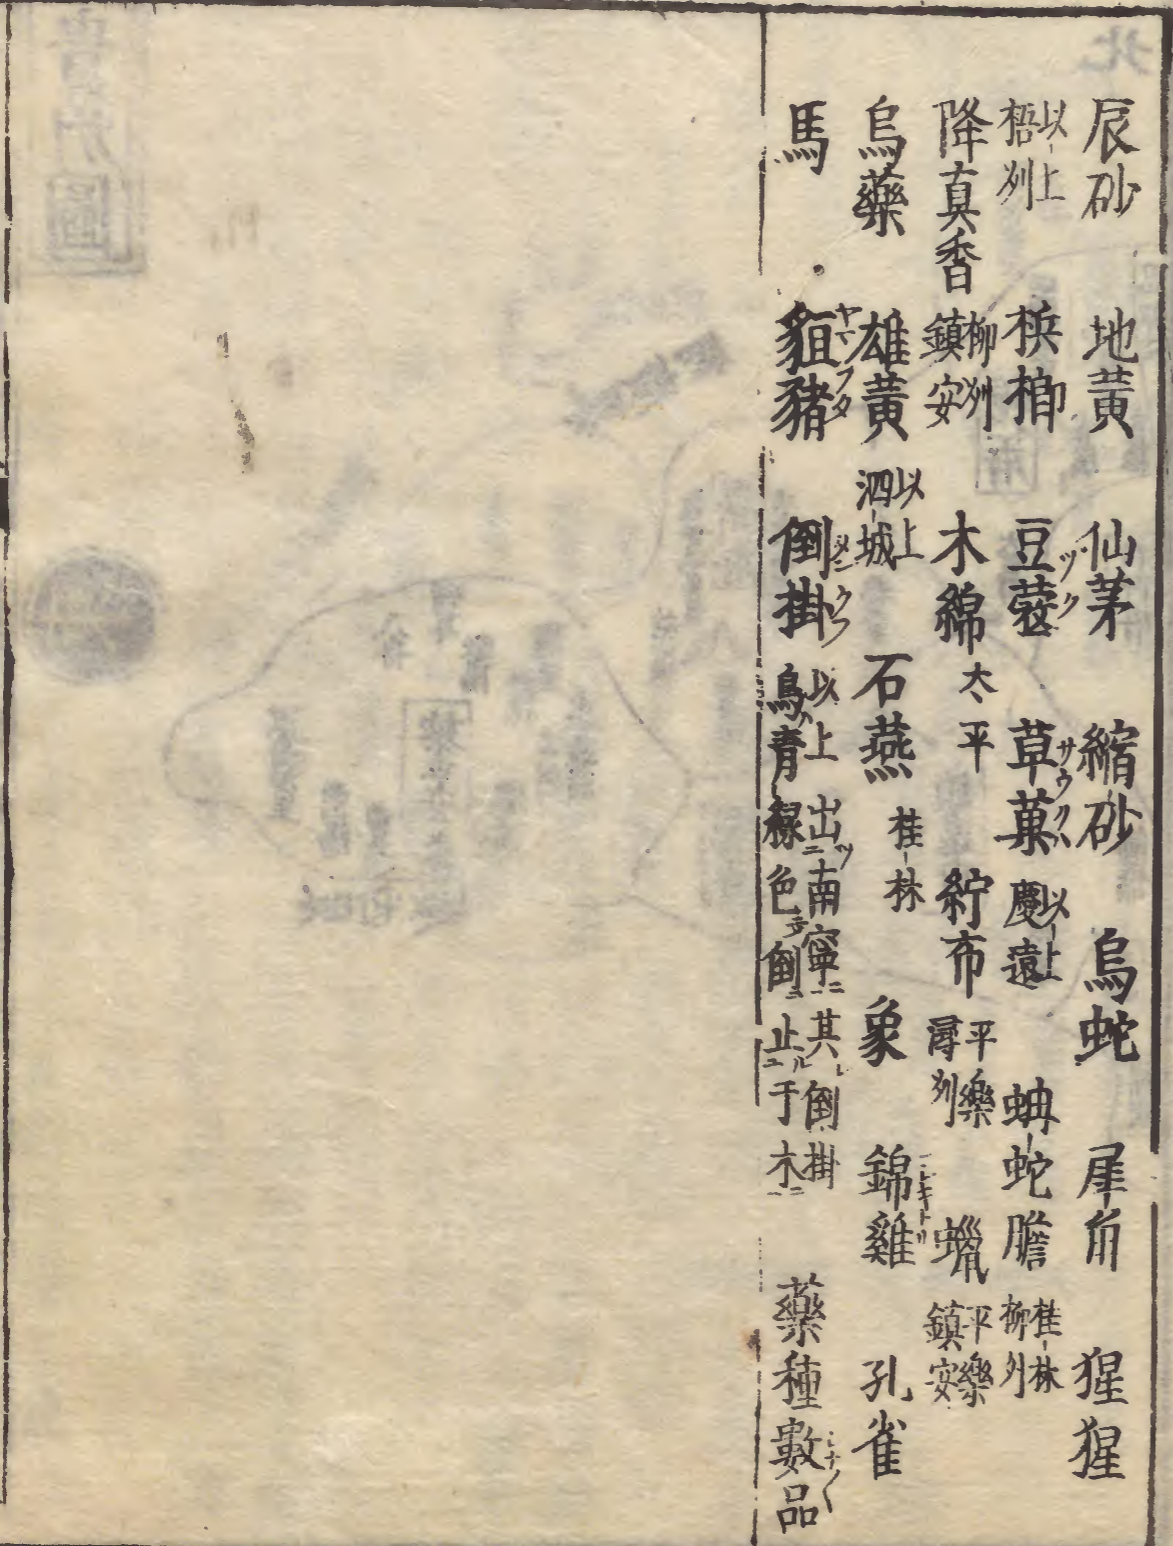 辰砂 地黃 仙茅 縮砂 烏蛇 犀角 猩猩
以上梧州 檳榔 豆蔲 草菓 以上慶遠 蚺蛇膽 桂林柳州
降真香 柳州鎮安 木綿 太平 紵布 平樂潯州 蠟 平樂鎮安
烏藥 雄黃 以上泗城 石燕 桂林 象 錦雞 孔雀
馬 貆豬 倒掛 以上出南寧其倒掛鳥青緑色倒止于木 藥種數品